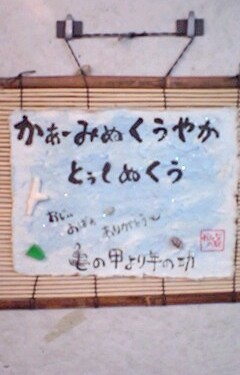 かぁーみぬくうやか
とぅしぬくう
おじぃ
おばぁ
ありがとう
亀の甲より年の功